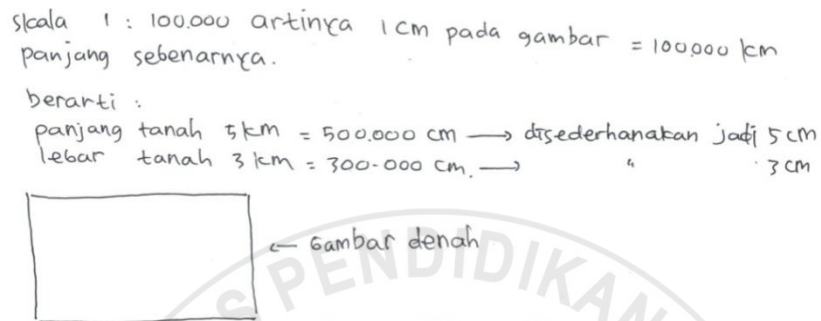 skala 1 : 100.000 artinya 1 cm pada gambar = 100.000 km
panjang sebenarnya.
berarti :
panjang tanah 5 km = 500.000 cm → disederhanakan jadi 5 cm
lebar tanah 3 km = 300.000 cm. → " 3 cm
← Gambar denah
S PENDIDIKAN